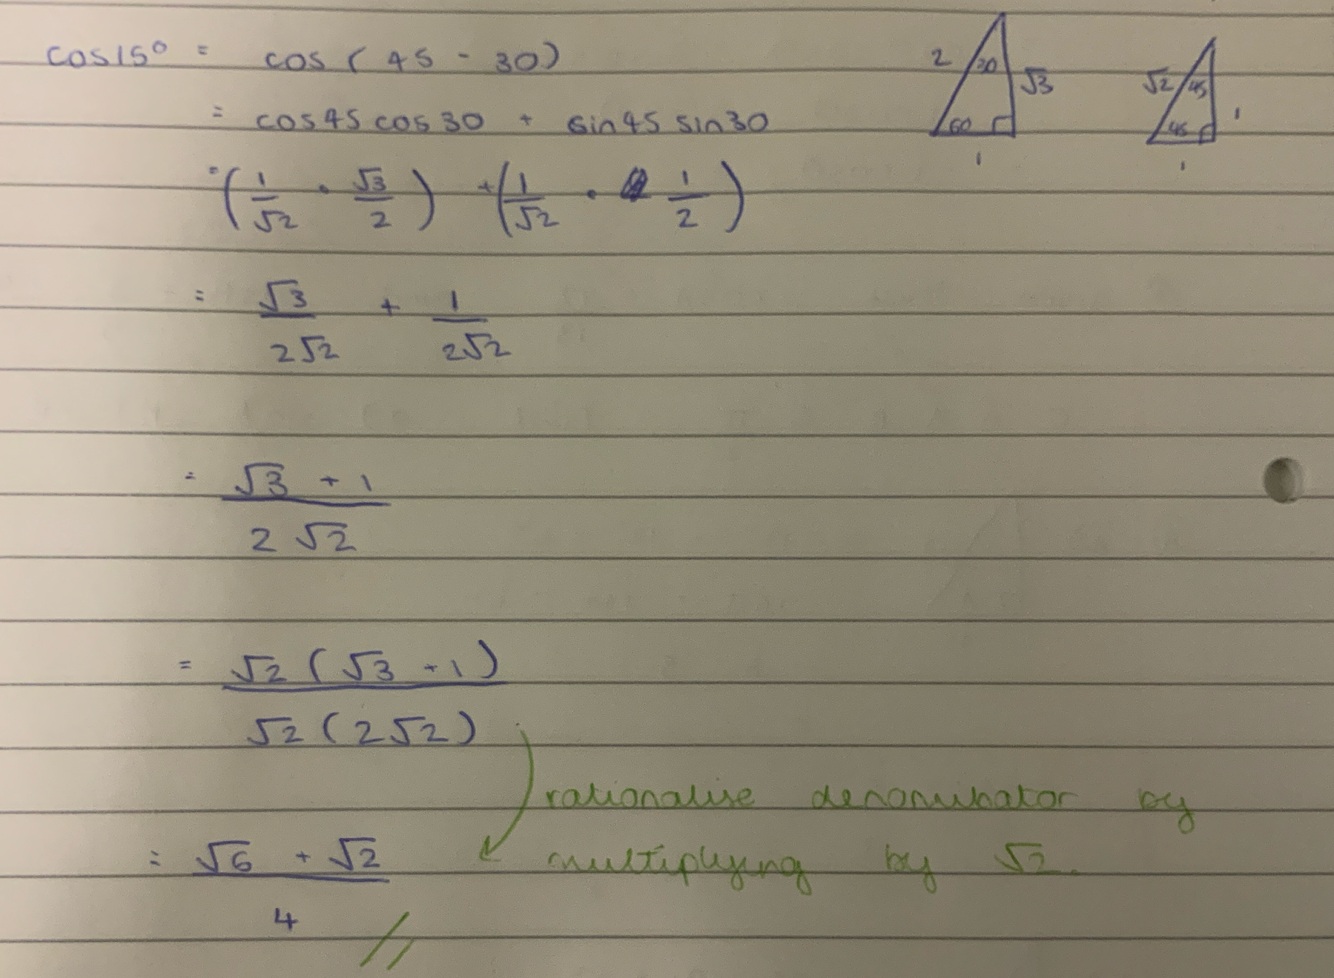 cos15° = cos(45 - 30)
= cos45 cos30 + sin45 sin30
= (1/√2 · √3/2) + (1/√2 · 1/2)
= √3/2√2 + 1/2√2
= √3 + 1 / 2√2
= √2(√3 + 1) / √2(2√2)
rationalise denominator by
multiplying by √2.
= √6 + √2 / 4 //
2 30 √3 60 1
√2 45 1 45 1